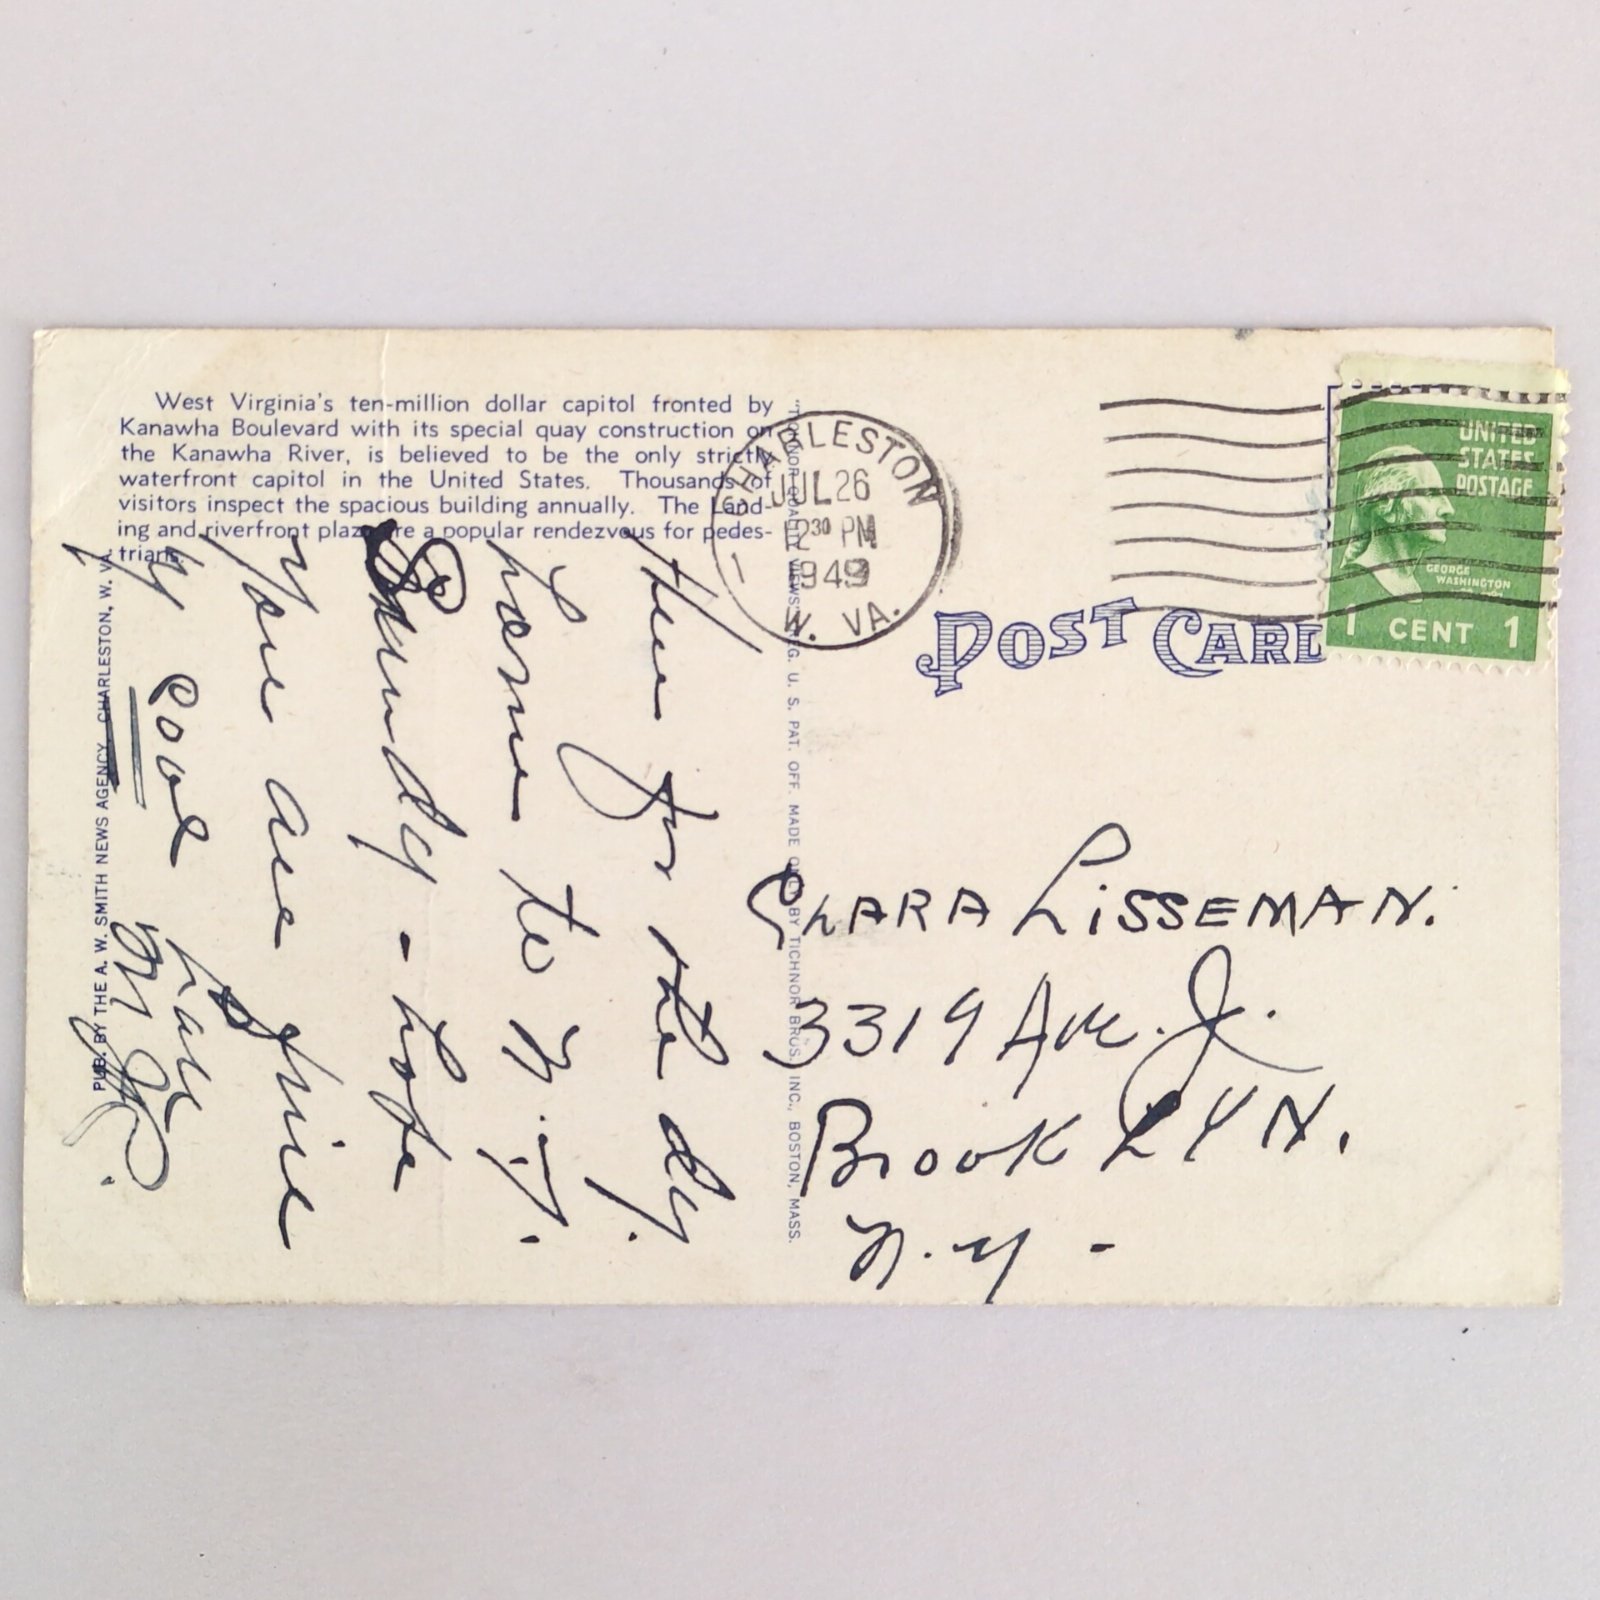 West Virginia's ten-million dollar capitol fronted by
Kanawha Boulevard with its special quay construction on
the Kanawha River, is believed to be the only strictly
waterfront capitol in the United States. Thousands of
visitors inspect the spacious building annually. The Land-
ing and riverfront plaza are a popular rendezvous for pedes-
trians.
PUB. BY THE A. W. SMITH NEWS AGENCY, CHARLESTON, W. VA.
"TICHNOR QUALITY VIEWS" REG. U. S. PAT. OFF. MADE ONLY BY TICHNOR BROS. INC., BOSTON, MASS.
CHARLESTON
JUL 26
12 30 PM
1949
W. VA.
1
POST CARD
UNITED
STATES
POSTAGE
GEORGE
WASHINGTON
1 CENT 1
here for the dy.
home to N.Y.
Sunday - hope
you are fine
& cool
CLARA LISSEMAN.
3319 Ave. J.
BrooKLYN.
N.Y -